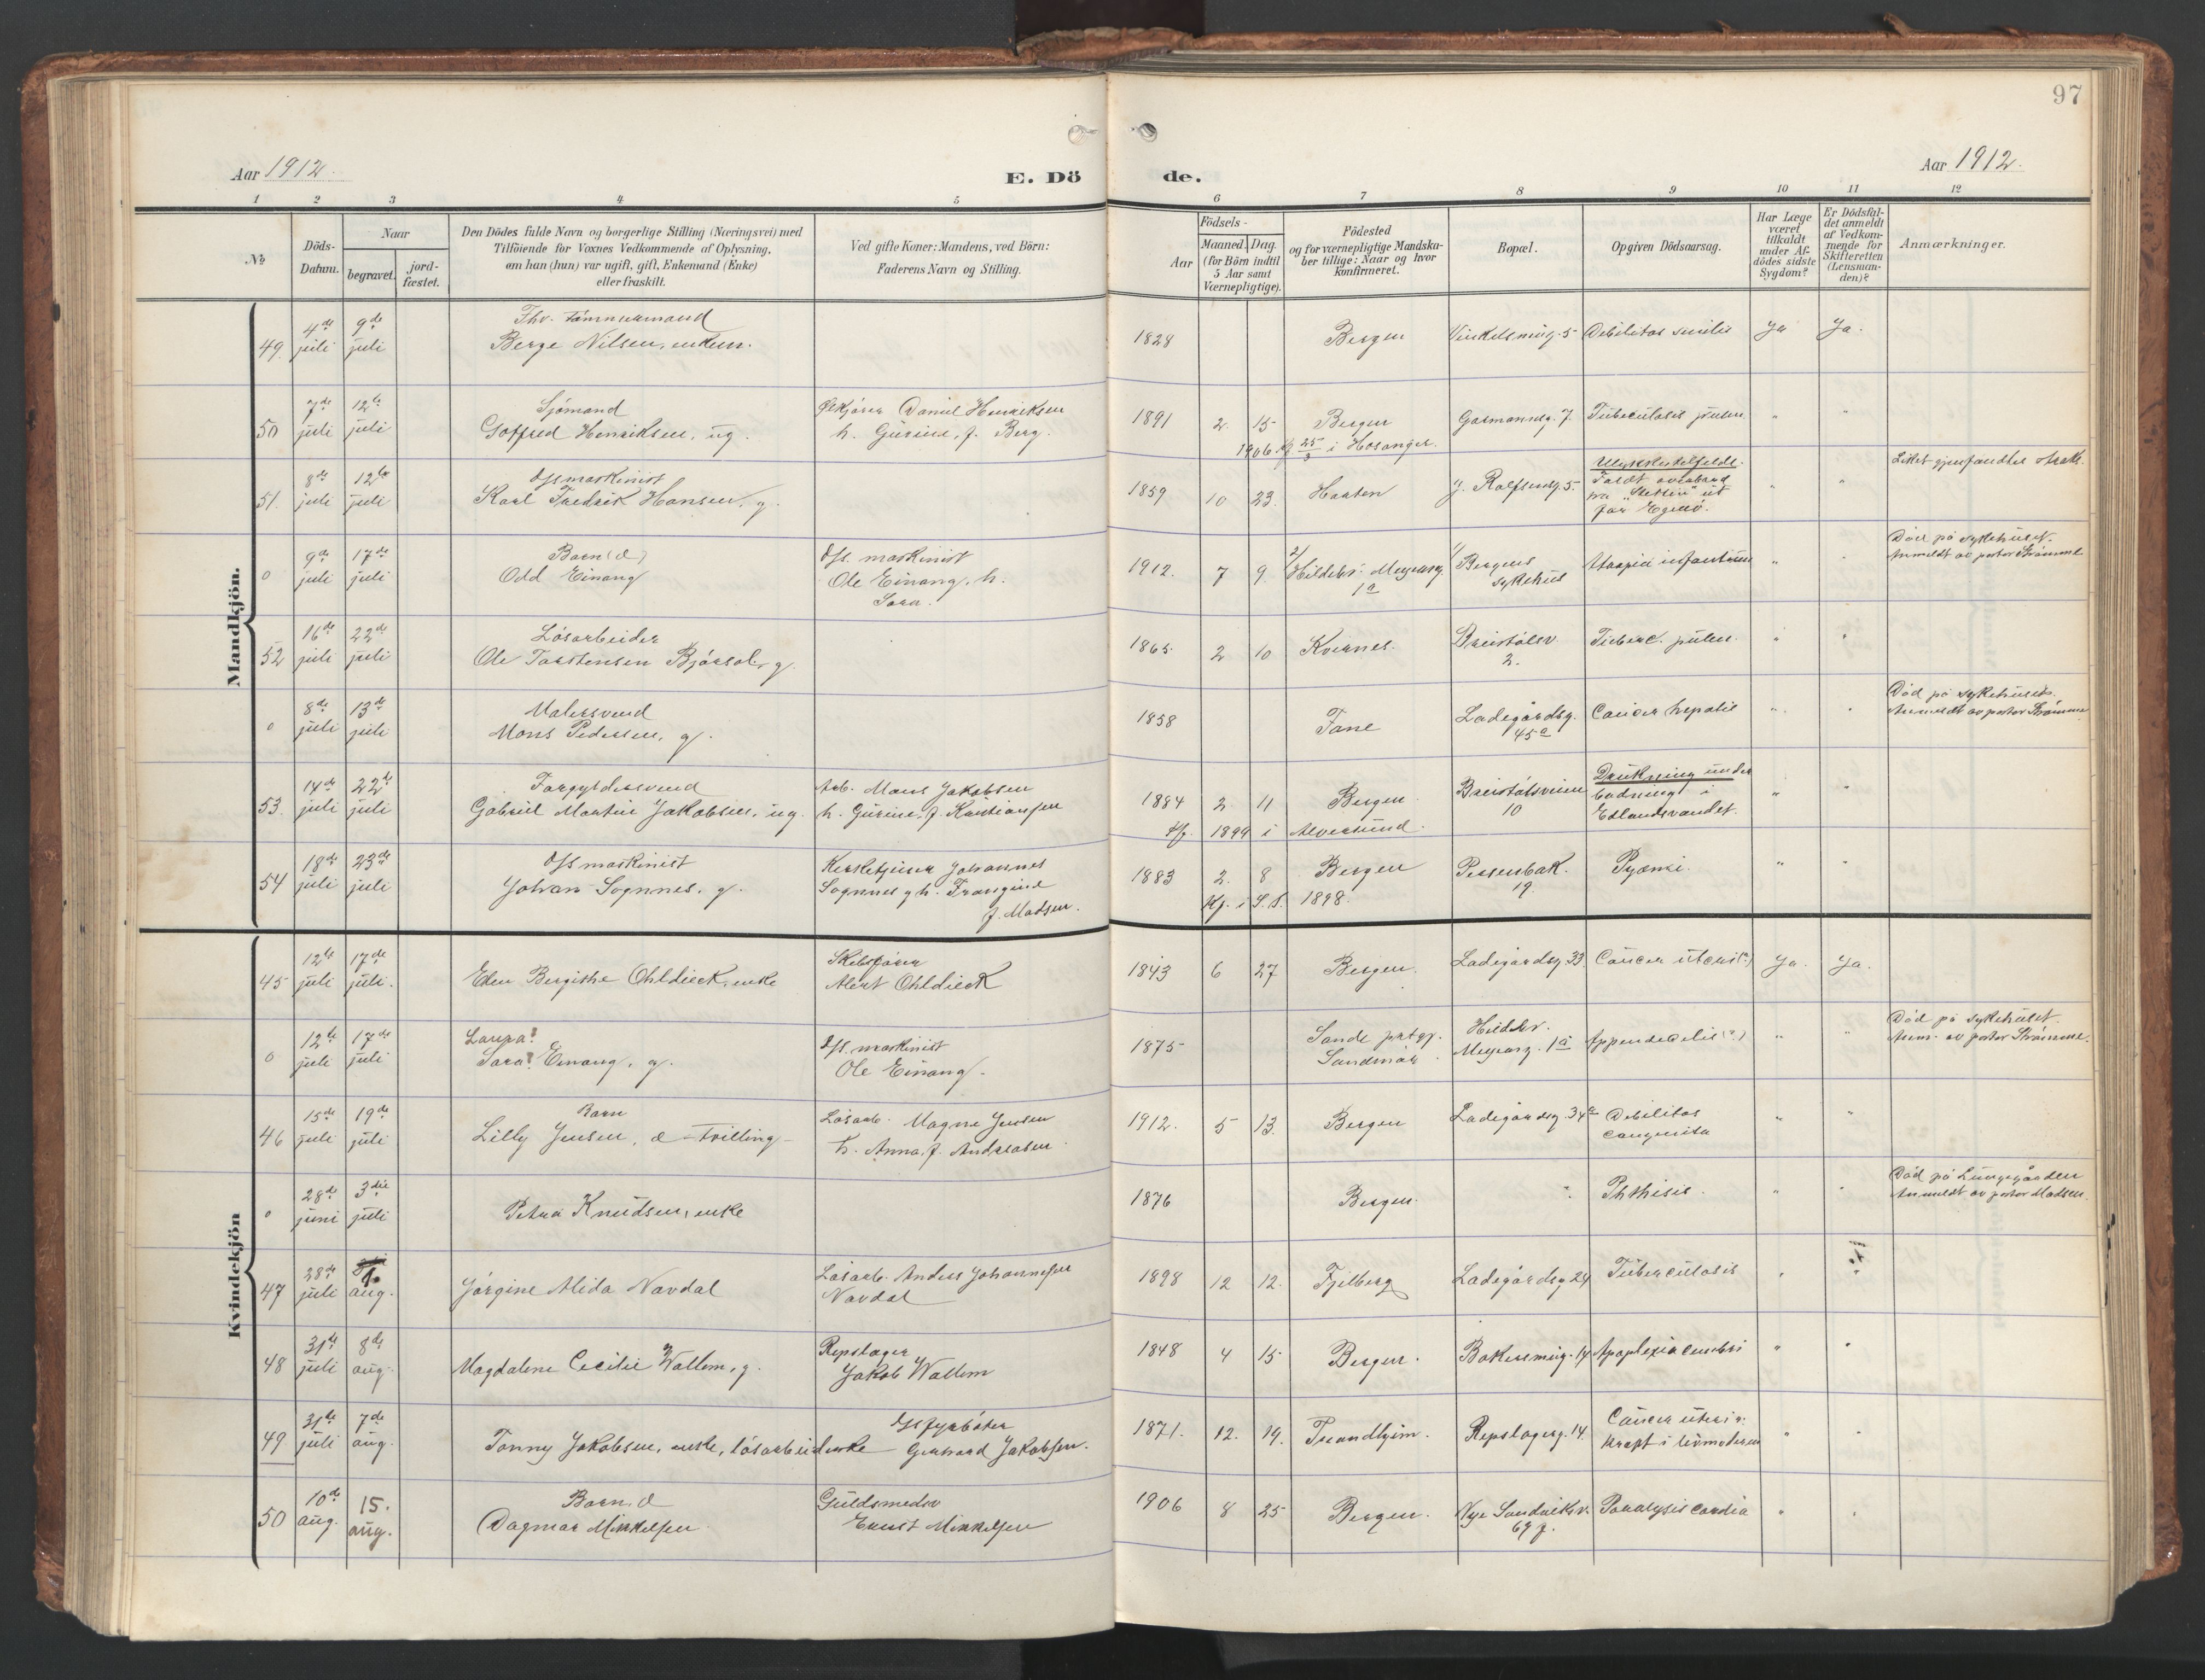 97
Aar 1912.
E. Dö
de.
Aar 1912.
1 2 3 4 5 6 7 8 9 10 11 12
No
Döds-Datum.
Naar
begravet. jord-fæstet.
Den Dödes fulde Navn og borgerlige Stilling (Næringsvei) med
Tilföiende for Voxnes Vedkommende af Oplysning,
om han (hun) var ugift, gift, Enkemand (Enke)
eller fraskilt.
Ved gifte Koner: Mandens, ved Börn:
Faderens Navn og Stilling.
Födsels-
Aar
Maaned. Dag.
(for Börn indtil
5 Aar samt
Værnepligtige).
Födested
og for værnepligtige Mandska-
ber tillige: Naar og hvor
konfirmeret.
Bopæl.
Opgiven Dödsaarsag.
Har Læge
været
tilkaldt
under Af-
dödes sidste
Sygdom?
Er Dödsfal-
det anmeldt
af Vedkom-
mende for
Skifteretten
(Lensman-
den)?
Anmærkninger.
Mandkjön.
49 4de juli 9de juli
Fhv. tömmermand
Berge Nilsen, enkem.
1828 Bergen Vinkelsmug. 5 Debilitas senilis Ja Ja.
50 7de juli 12te juli
Sjömand
Gotfred Henriksen, ug.
Daniel Henriksen
h. Gurine, f. Berg.
1891 2 15 Bergen
1906. 25/3 i Hosanger.
Gasmannsg. 7. Tuberculosis pulm. " "
51. 8de juli 12te juli
Dfs maskinist
Karl Fredrik Hansen, g.
1859 10 23. Horten J. Rolfsensg. 5.
Ulykkestilfælde.
Faldt overbord
fra "Stettin" ut
for Egerö.
" "
Liket gjenfandtes straks.
0 9de juli 17de juli
Barn (d)
Odd Einang
Dfs. maskinist
Ole Einang, h.
Sara.
1912. 7 9. 2/ Hildebr. Meyersg.
1a
1/ Bergens
sykehus
Atropia infantum "
Död på sykehuset.
Anmeldt av pastor Strömme
52 16de juli 22de juli
Lösarbeider
Ole Torstensen Bjórsol, g.
1865. 2 10 Kvernes. Breistölsv.
2.
Tuberc. pulm. " "
0 8de juli 13de juli
Malersvend
Mons Pedersen, g.
1858 Fane Ladegårdsg.
45a
Cancer hepatis " "
Död på sykehuset.
Anmeldt av pastor Strömme
53. 14de juli 22de juli
Forgyldersvend
Gabriel Martin Jakobsen, ug.
Arb. Mons Jakobsen
h. Gurine, f. Kristiansen
1884 2 11 Bergen
Kf. 1899 i Alversund.
Breistölsveien
10
Drukning under
badning i
Eslandsvandet.
" "
54 18de juli 23de juli
Dfs maskinist
Johan Sognnes, g.
Kirketjener Johannes
Sognnes g h. Frangine
f. Madsen.
1883 2. 8 Bergen
Kf. i 1898.
Pessenbak.
19.
Pyæmi. " "
Kvindekjön
45 12te juli 17de juli.
Elen Bergithe Ohldieck, enke
Skibsförer
Alert Ohldieck
1843 6 27 Bergen. Ladegårdsg. 33. Cancer uteri(?) Ja. Ja.
0 12te juli 17de juli
Laura?
Sara? Einang, g.
Dfs. maskinist
Ole Einang.
1875 Sande prstgj.
Söndmör.
Hildebr.
Meyersg. 1a
Appendecitis(?) " "
Död på sykehuset.
Anm. av pastor Strömme.
46 15de juli 19de juli
Barn
Lilly Jensen, d - tvilling -
Lösarb. Magne Jensen
h. Anna, f. Andreasen
1912. 5 13. Bergen Ladegårdsg. 34a Debilitas
congenita
" "
0 28de juni 3die juli
Petra Knudsen, enke
1876 Bergen. " Phthisis. " "
Död på Lungegården
Anmeldt av pastor Madsen.
47 28de juli 1. aug.
Jörgine Alida Navdal
Lösarb. Anders Johannesen
Navdal
1898 12 12. Fjelberg Ladegårdsg 24 Tuberculosis "
48 31te juli 8de aug.
Magdalene Cecilie Wallem, g.
Repslager
Jakob Wallem
1848 4 15 Bergen. Bakersmug. 14 Apoplexia cerebri " "
49 31te juli 7de aug.
Tonny Jakobsen, enke, lösarbeiderske
Dfs fyrböter
Gerhard Jakobsen.
1871. 12. 19. Trondhjim. Repslagerg. 14.
Cancer uteri v.
kræft i livmoderen
" "
50 10de aug. 15. aug.
Barn, d
Dagmar Mikkelsen
Guldsmedsv
Ernst Mikkelsen
1906 8 25 Bergen. Nye Sandviksv.
69 f.
Paralysis cordia " "